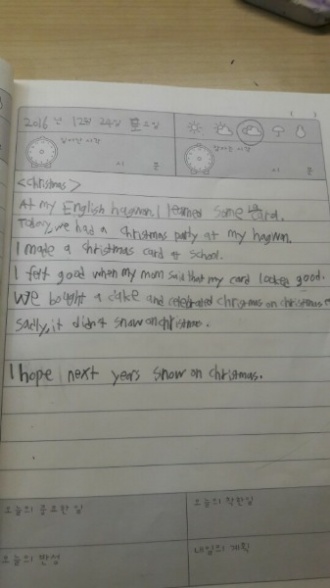 2016 년 12월 24일 토요일
일어난 시각
시 분
시 분
<Christmas>
At my English hagwon. I learned some card.
Today, we had a Christmas party at my hagwon.
I make a christmas card at school.
I felt good when my mom said that my card looked good.
We bought a cake and celebrated christmas on christmas
Sadly, it didn't snow on christmas.
I hope next years snow on christmas.
오늘의 중요한 일
오늘의 착한일
오늘의 반성
내일의 계획